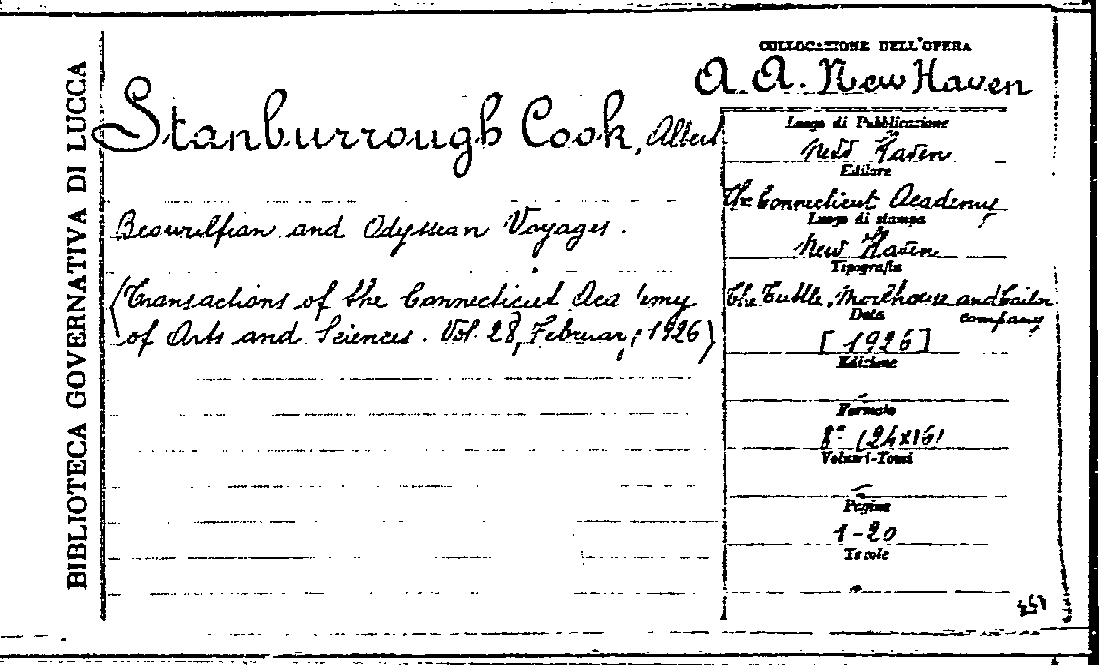 BIBLIOTECA GOVERNATIVA DI LUCCA
COLLOCAZIONE DELL'OPERA
A. A. New Haven
Stanburrough Cook, Albert
Beowulfian and Odyssean Voyages.
(Transactions of the Connecticut Academy
of Arts and Sciences. Vol. 28, February, 1926)
Luogo di Pubblicazione
New Haven
Editore
The Connecticut Academy
Luogo di stampa
New Haven
Tipografia
The Tuttle, Morehouse and Tailor
company
Data
[1926]
Edizione
Formato
8° (24x16)
Volumi-Tomi
Pagine
1-20
Tavole